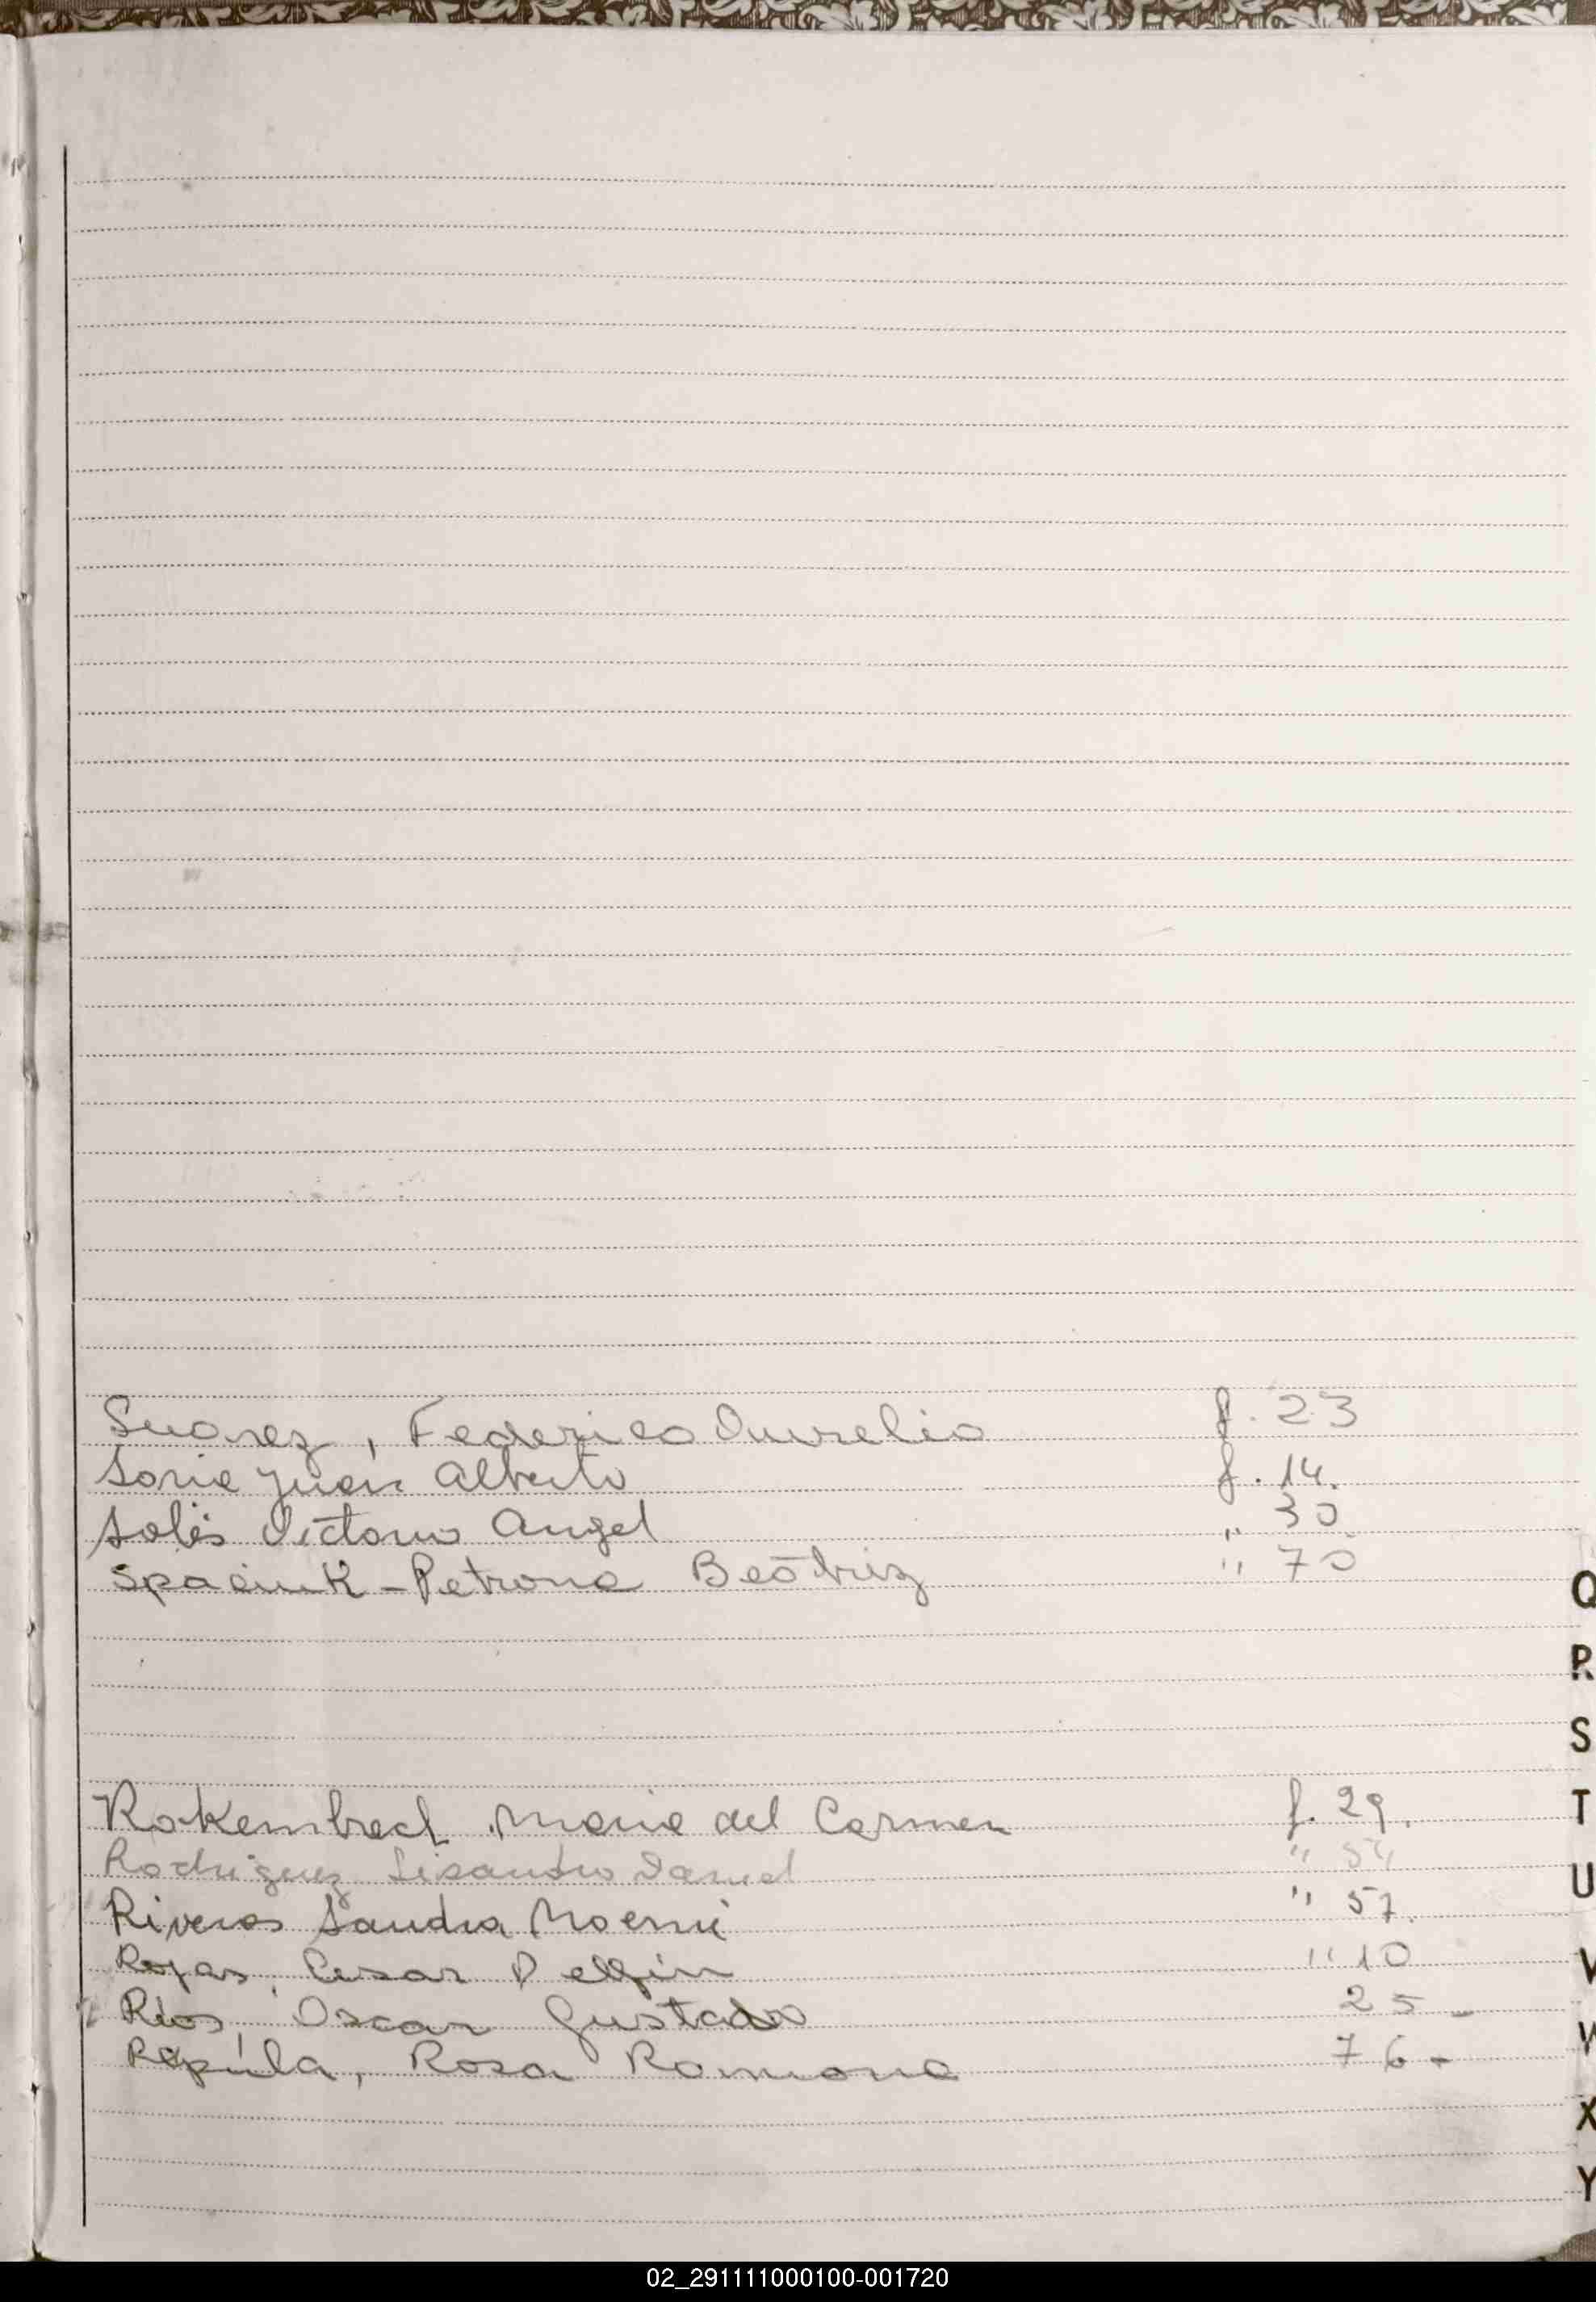 Suarez, Federico Aurelio f. 23
Soria Juan Alberto f. 14.
Solis Victorio Angel " 30
Spaciuk - Petrona Beatriz " 70
Rokembach Maria del Carmen f. 29.
Rodriguez Lisandro Daniel " 54
Riveros Sandra Noemi " 57.
Rojas, Cesar Delfin " 10
Rios, Oscar Gustavo 25 -
Rapúla, Rosa Ramona 76 -
Q
R
S
T
U
V
W
X
Y
02_291111000100-001720